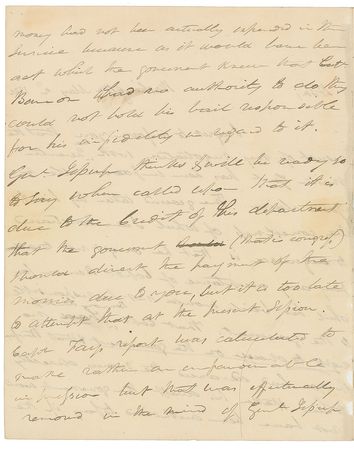 money had not been actually expended in the
service because as it would have been
act which the government knew that Capt
had no authority to do they
could not hold his bail responsible
for his infidelity in regard to it.
Genl Jesup thinks & will be ready so
to say when called upon that it is
due to the Credit of this department
that the goverment (that is congress)
should direct the payment of the
monies due to you, but it is too late
to attempt that at the present Session.
Capt report was calculated to
make rather an unfavourable
impression but that was effectually
removed in the mind of Genl Jesup